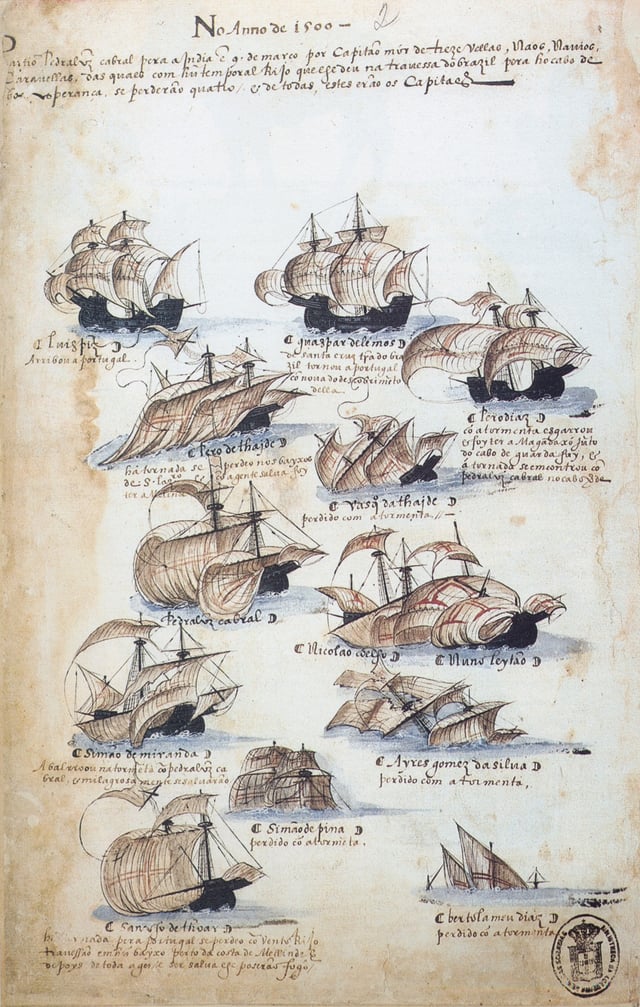 No Anno de 1500 — 2
Partio Pedralvz cabral pera a India ẽ 9. de março por Capitão mór de treze Vellas, Naos, Navios,
Caravellas, das quaes com hũ temporal Rijo que lhe deu na travessa do brazil pera ho cabo de
boa esperança, se perderão quatro / & de todas, estes erão os Capitaẽs
Luis piz
Arribou a portugal.
guaspar de lemos
de santa cruz trã do bra
zil tornou a portugal
cõ nova do descobrimẽto
della.
Pero diaz
cõ a tormenta esgarrou
& foy ter a Magadaxó jũto
do cabo de guardafuy, &
á tornada se encontrou cõ
pedralvz cabral no cabo
Pero de thaide
há tornada se perdeo nos bayxos
de S.
& a gente salva foy
ter a
Vasq̃ da thaide
perdido com a tormenta.
Pedralvz cabral
Nicolao coelho
Nuno leytão
Simão de miranda
Abalrroou na tormẽta cõ pedralvz ca
bral, & milagrosamente se salvarão
Ayres gomez da silva
perdido com a tormenta.
Simão de pina
perdido cõ a tormẽta.
Sancho de thoar
tornada pera Portugal se perdeo cõ vento Rijo
travessão em hũ bayxo perto da costa de Melinde &
depoys de toda a gente ser salva lhe poserão fogo
bertolameu diaz
perdido cõ a tormenta